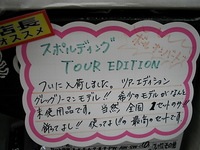 店長
オススメ
スポルディング
TOUR EDITION
ついに入荷しました。ツアーエディション
グレッグノーマンモデル!! 希少のモデルがなんと
未使用品です。当然 全国 1セットのみ!
飾ってよし!! 使ってよしの 最高のセットです